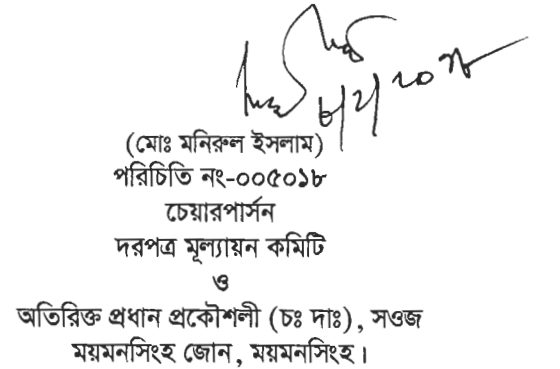 (মোঃ মনিরুল ইসলাম)
পরিচিতি নং-০০৫০১৮
চেয়ারপার্সন
দরপত্র মূল্যায়ন কমিটি
ও
অতিরিক্ত প্রধান প্রকৌশলী (চঃ দাঃ), সওজ
ময়মনসিংহ জোন, ময়মনসিংহ।